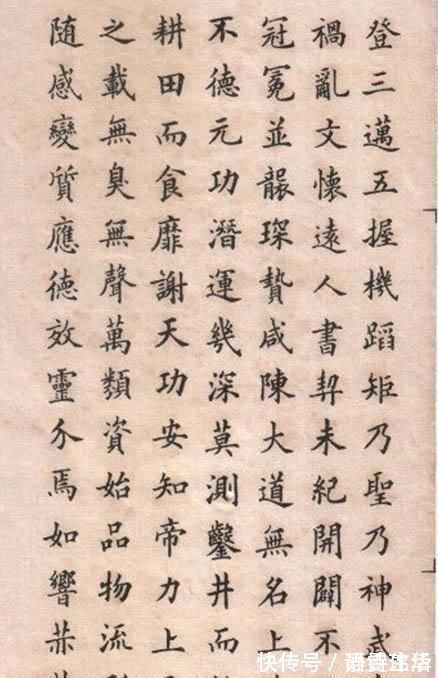 登三邁五握機蹈矩乃聖乃神武
禍亂文懷遠人書契未紀開闢不
冠冕並襲琛贄咸陳大道無名上
不德元功潛運幾深莫測鑿井而
耕田而食靡謝天功安知帝力上
之載無臭無聲萬類資始品物流
随感變質應德效靈介焉如響
快传号 /